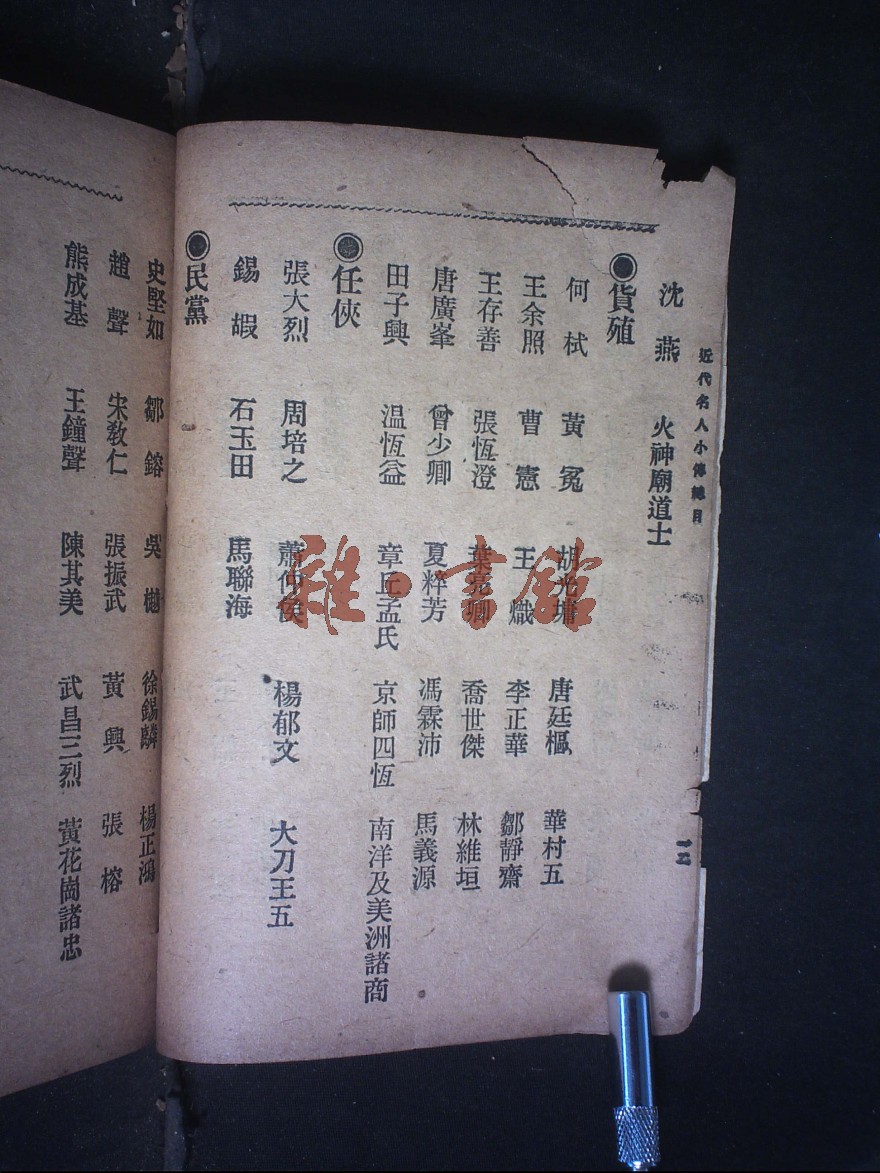 近代名人小傳總目
一二
沈燕　火神廟道士
◉貨殖
何栻　黃冕　胡光墉　唐廷樞　華村五
王余照　曹憲　王熾　李正華　鄒靜齋
王存善　張恆澄　葉亮卿　喬世傑　林維垣
唐廣峯　曾少卿　夏粹芳　馮霖沛　馬義源
田子興　温恆益　章丘孟氏　京師四恆　南洋及美洲諸商
◉任俠
張大烈　周培之　蕭仲侯　楊郁文　大刀王五
錫嘏　石玉田　馬聯海
◉民黨
史堅如　鄒鎔　吳樾　徐錫麟　楊正鴻
趙聲　宋敎仁　張振武　黃興　張榕
熊成基　王鐘聲　陳其美　武昌三烈　黃花崗諸忠
雅書館